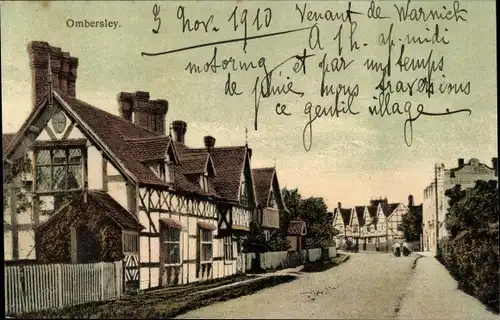 Ombersley.
3 Nov. 1910 Venant de Warwick
A 1h. ap-midi
motoring et par un temps
de pluie nous traversions
ce gentil village